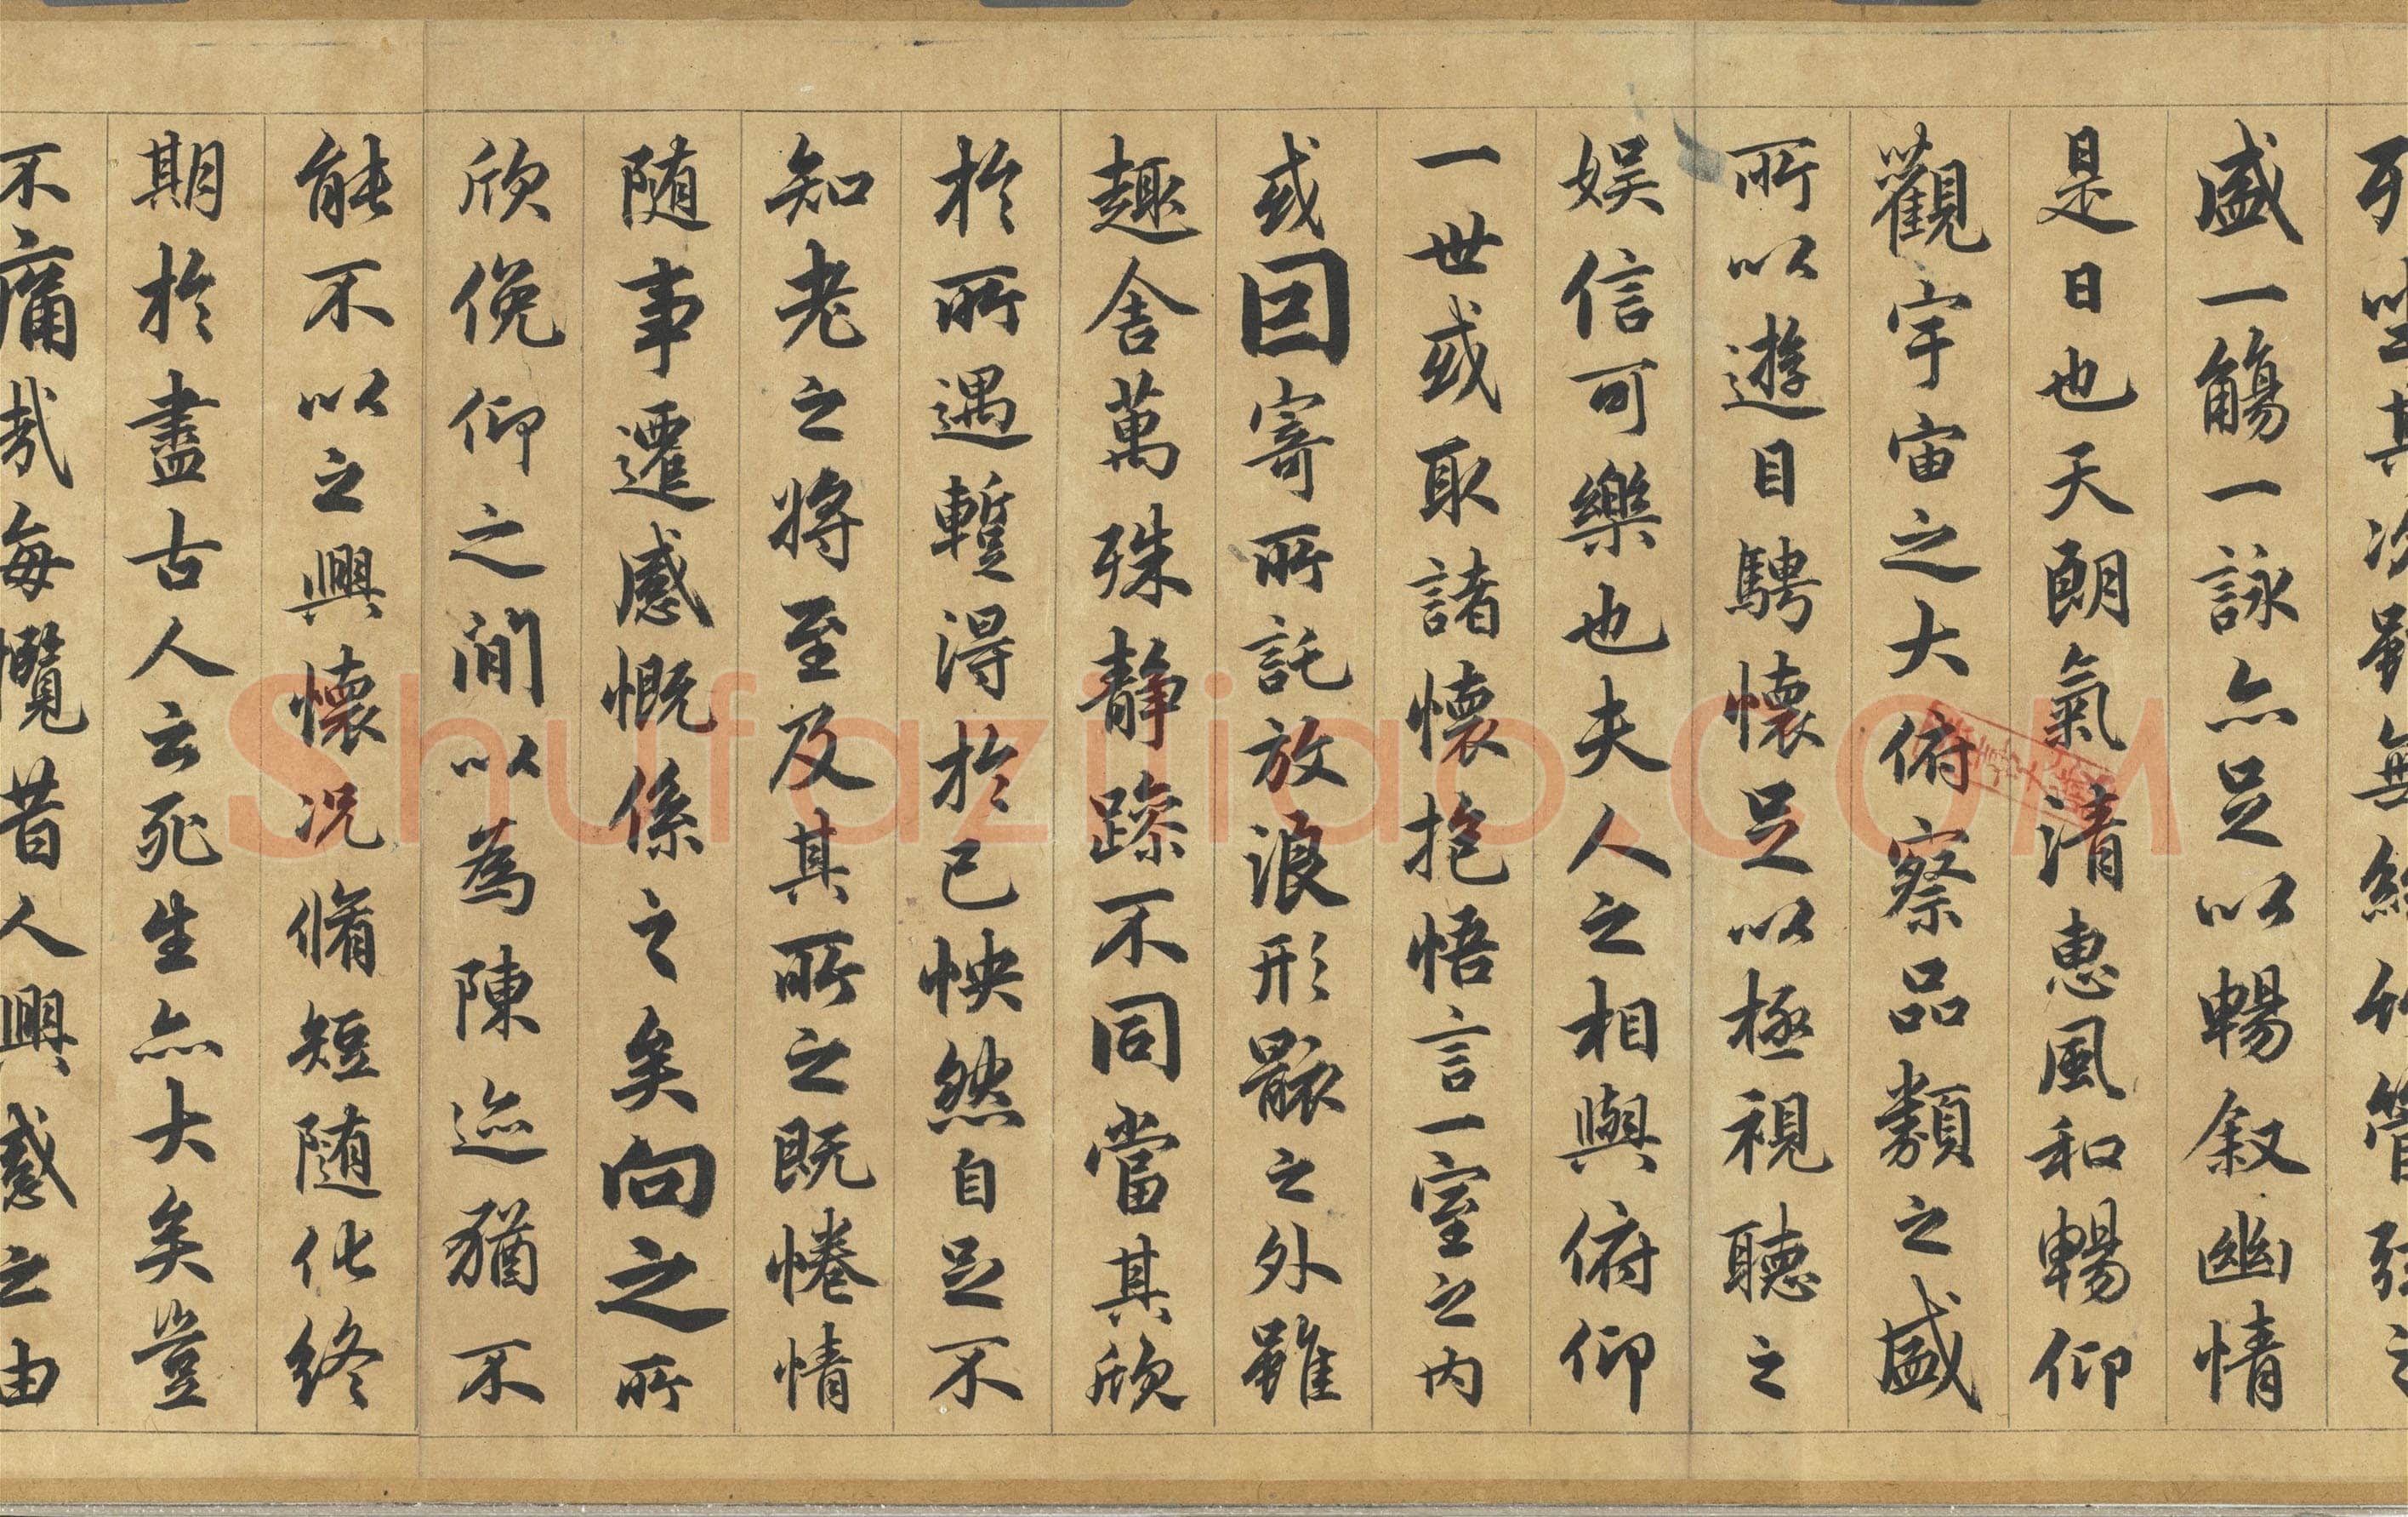 列坐其次雖無絲竹管弦之
盛一觴一詠亦足以暢叙幽情
是日也天朗氣清惠風和暢仰
觀宇宙之大俯察品類之盛
所以遊目騁懷足以極視聽之
娱信可樂也夫人之相與俯仰
一世或取諸懷抱悟言一室之内
或因寄所託放浪形骸之外雖
趣舍萬殊静躁不同當其欣
於所遇蹔得於己怏然自足不
知老之将至及其所之既惓情
随事遷感慨係之矣向之所
欣俛仰之閒以為陳迹猶不
能不以之興懷况脩短随化終
期於盡古人云死生亦大矣豈
不痛哉每攬昔人興感之由
Shufaziliao.COM